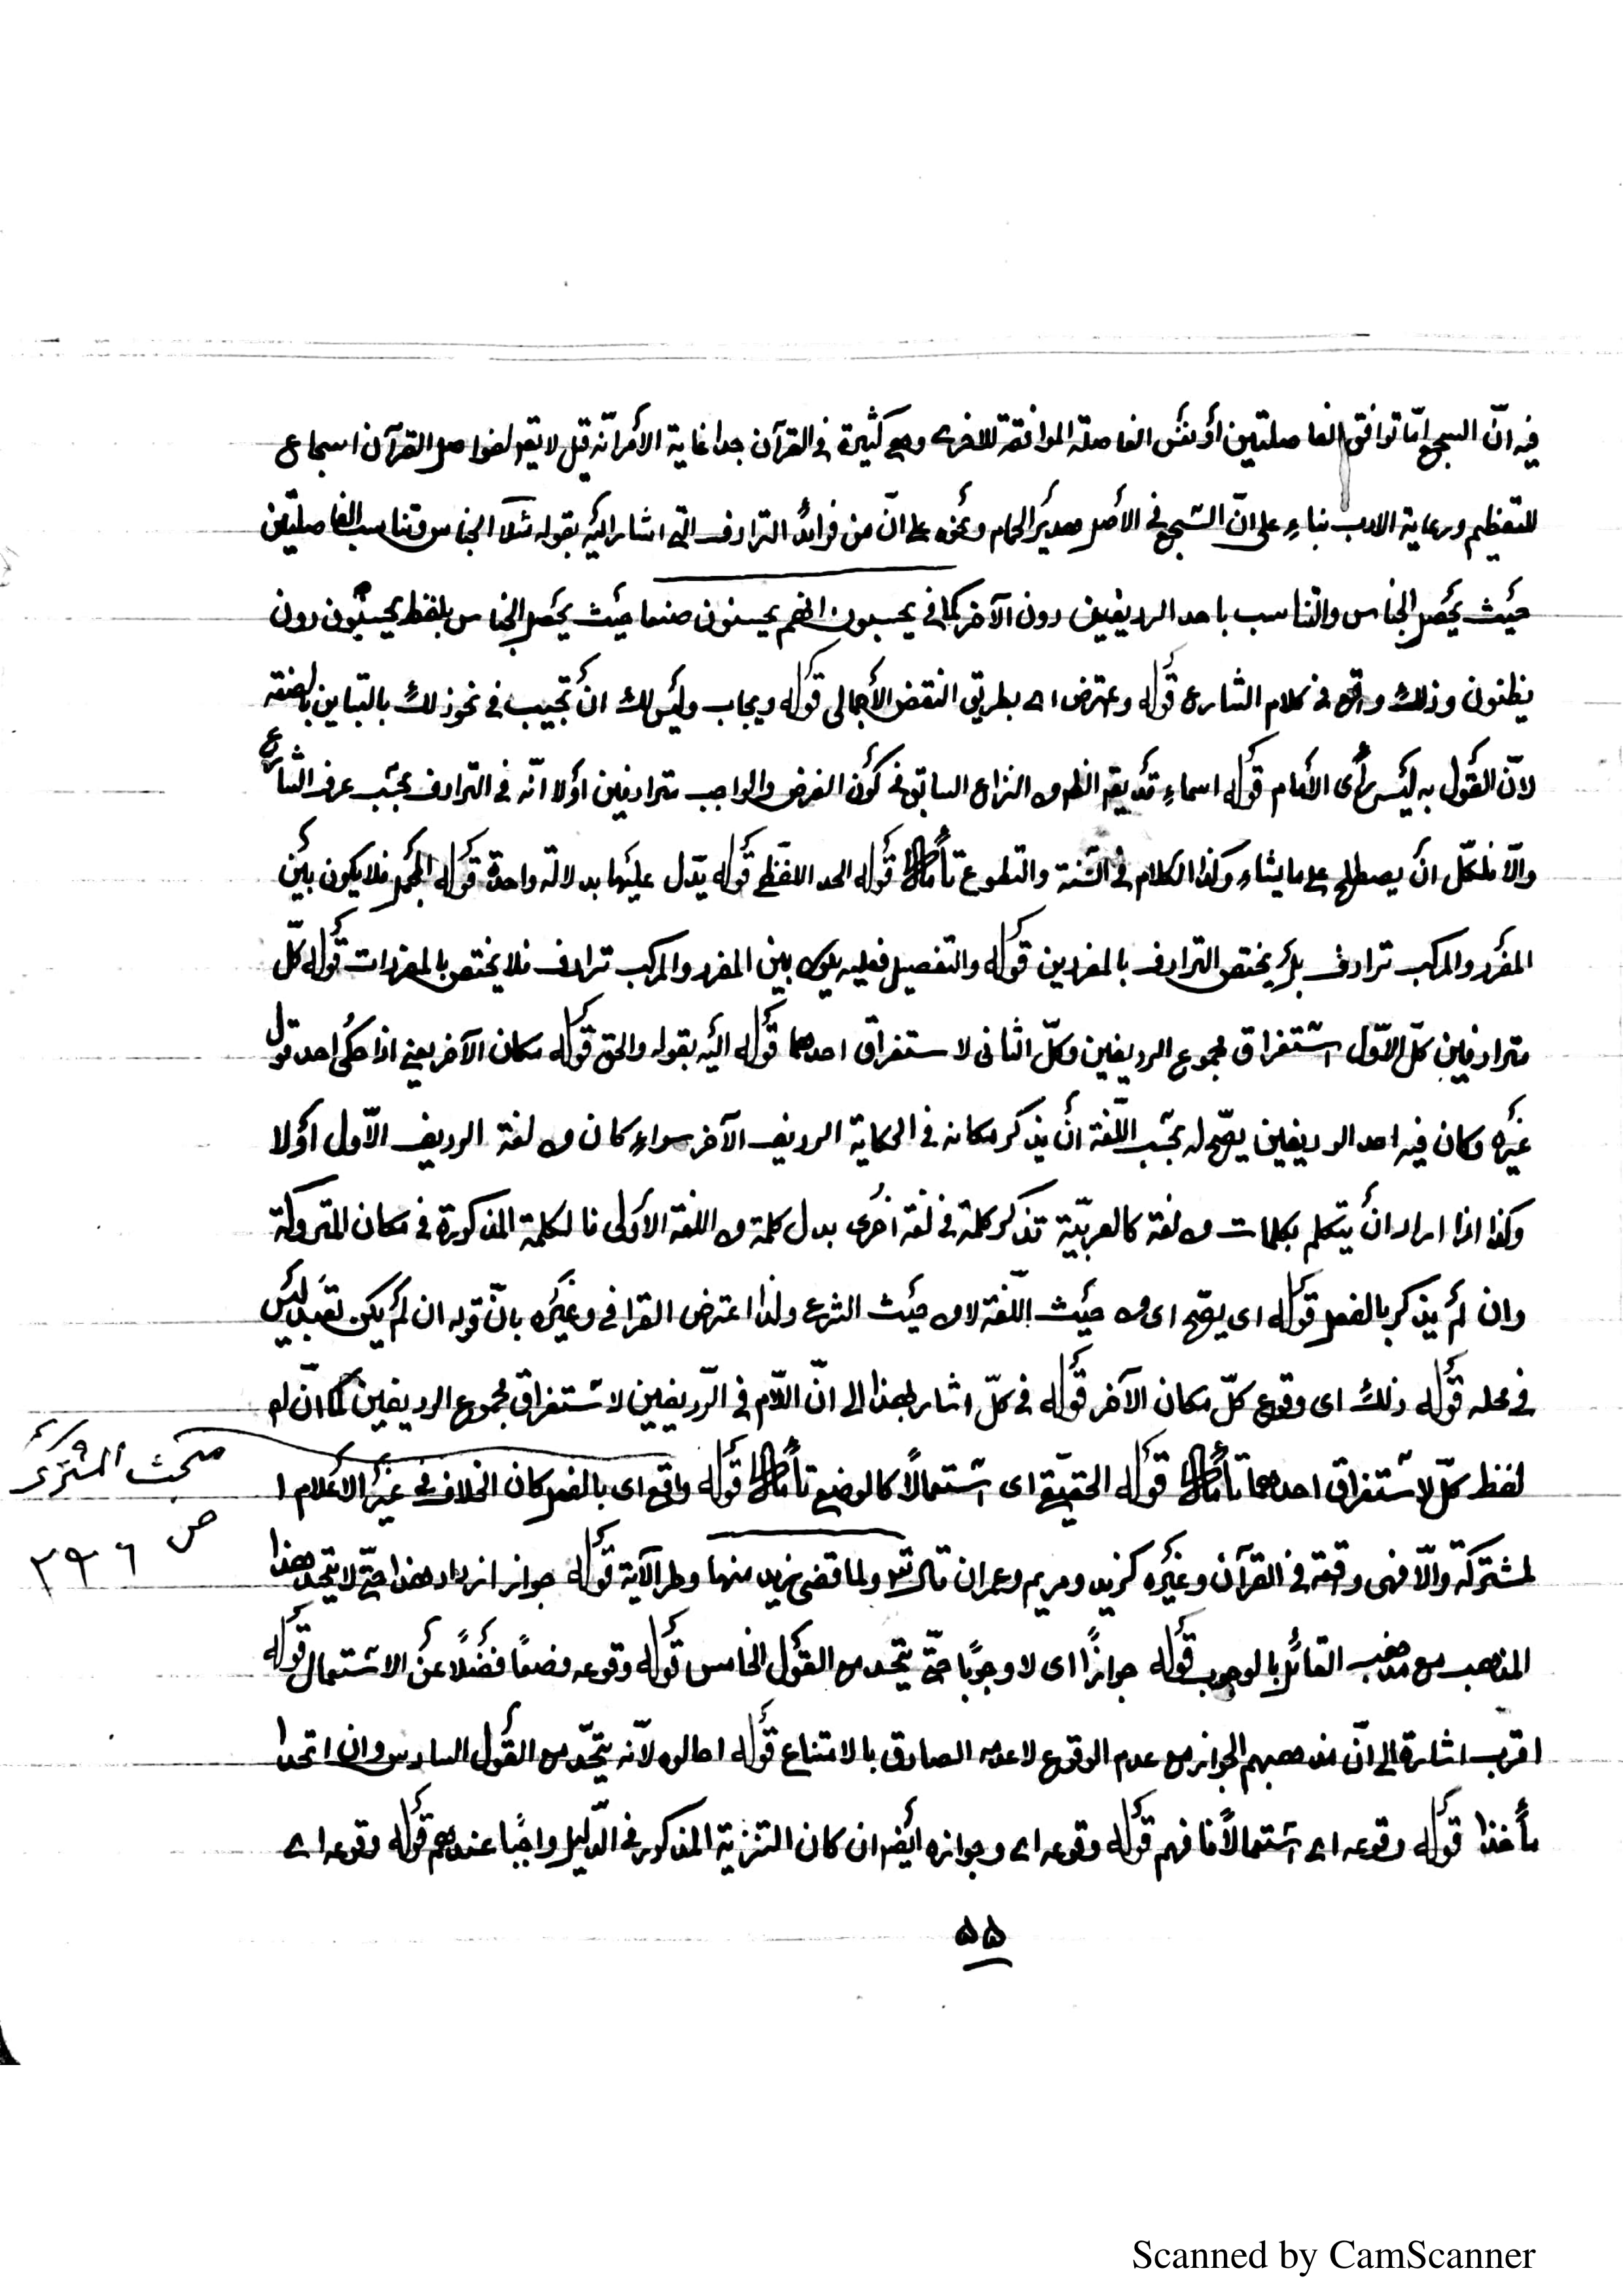 فيه انّ السجع امّا توافق الفاصلتين أو نفس الفاصلة الموافقة للاخرى وهي كثيرة في القرآن جدا غاية الأمر انّه قيل لا يقم لفواصل القرآن اسجاع
للتعظيم ورعاية الادب بناءً على انّ السّجع في الأصل هدير الحمام ونحوه على انّ من فوائد الترادف التي اشار اليه بقوله مثلا الجناس وتناسب الفاصلتين
حيث يحصل الجناس والتناسب باحد الرديفين دون الآخر كما في يحسبون انهم يحسنون صنعا حيث يحصل الجناس بلفظ يحسبون دون
يظنون وذلك واقع في كلام الشارع قوله وعترض اى بطريق النقض الأجمالى قوله ويجاب وليس لك انْ تجيب في نحو ذلك بالتباين بالصفة
لانّ القول به ليس رأى الأمام قوله اسماء قد يقم الظم ان النزاع السابق في كون الفرض والواجب مترادفين أولا انّه في الترادف بحسب عرف الشارع
والّا فلكلّ انْ يصطلح على ما يشاء وكذا الكلام في السّنة والتطوع تأمل قوله الحد اللفظي قوله يدّل عليها بدلالة واحدة قوله المجمل فلا يكون بين
المفرد والمركب ترادف بل يختص الترادف بالمفردين قوله والتفصيل فعليه يكون بين المفرد والمركب ترادف فلا يختص بالمفردات قوله كلّ
مترادفين كلّ الأوّل استغراق لمجموع الرديفين وكلّ الثانى لاستغراق احدهما قوله اليه بقوله والحق قوله مكان الآخر يعني اذا حكى احد قول
غيره وكان فيه احد الرديفين يصّح له بحسب اللّغة انْ يذكر مكانه في الحكاية الرديف الآخر سواء كان من لغة الرديف الأوّل أوْلا
وكذا اذا اراد انْ يتكلم بكلمات من لغة كالعربيّة تذكر كلمة في لغة اخرى بدل كلمة من اللغة الأولى فالكلمة المذكورة في مكان المتروكة
وان لم يذكر بالفعل قوله اى يصّح اى من حيث اللّغة لا من حيث الشرع ولذا اعترض القرافي وغيره بانّ قوله ان لم يكن تعبّد ليس
في محله قوله ذلك اى وقوع كلّ مكان الآخر قوله في كلّ اشار بهذا الى انّ اللّام في الرّديفين لاستغراق مجموع الرديفين كما انّ له
لفظ كلّ لاستغراق احدهما تأمل قوله الحقيقي اى استعمالًا كالوضع تأمل قوله واقع اى بالفعل كان الخلاف في غير الاعلام ا
لمشتركة والّا فهى وقعة في القرآن وغيره كزيد ومريم وعمران قال تع ولما قضى زيد منها وطرا الآية قوله جواز ازداد هذا حتّى لا يتحد هذا
المذهب مع مذهب القائل بالوجوب قوله جوازًا اى لا وجوبًا حتّى يتحد مع القول الخامس قوله وقوعه وضعًا فضلًا عن الاستعمال قوله
اقرب اشارة الى انّ مذهبهم الجواز مع عدم الوقوع لا عدمه الصادق بالامتناع قوله احالوه لانّه يتحّد مع القول السادس وان اتحدا
مأخذا قوله وقوعه اى استعمالًا فافهم قوله وقوعه اى وجوازه ايضم ان كان التنزية المذكور في الدّليل واجبًا عندهم قوله وقوعه اى
مبحث المشترك
ص ٢٩٦
٥٥
Scanned by CamScanner